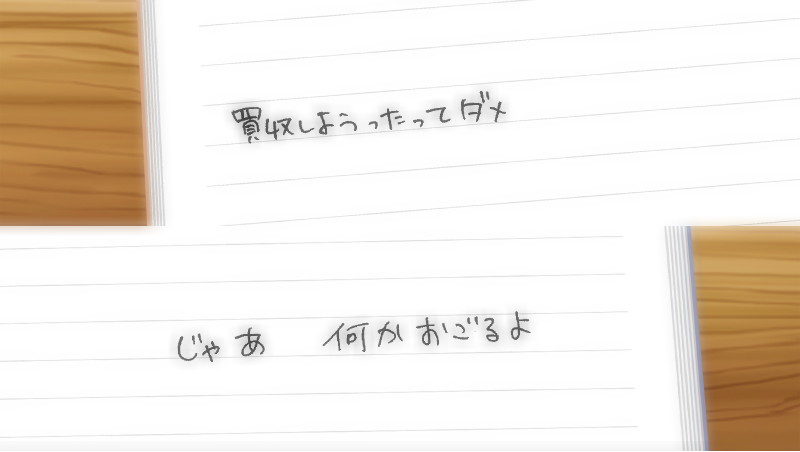 買収しようったってダメ
じゃあ 何かおごるよ